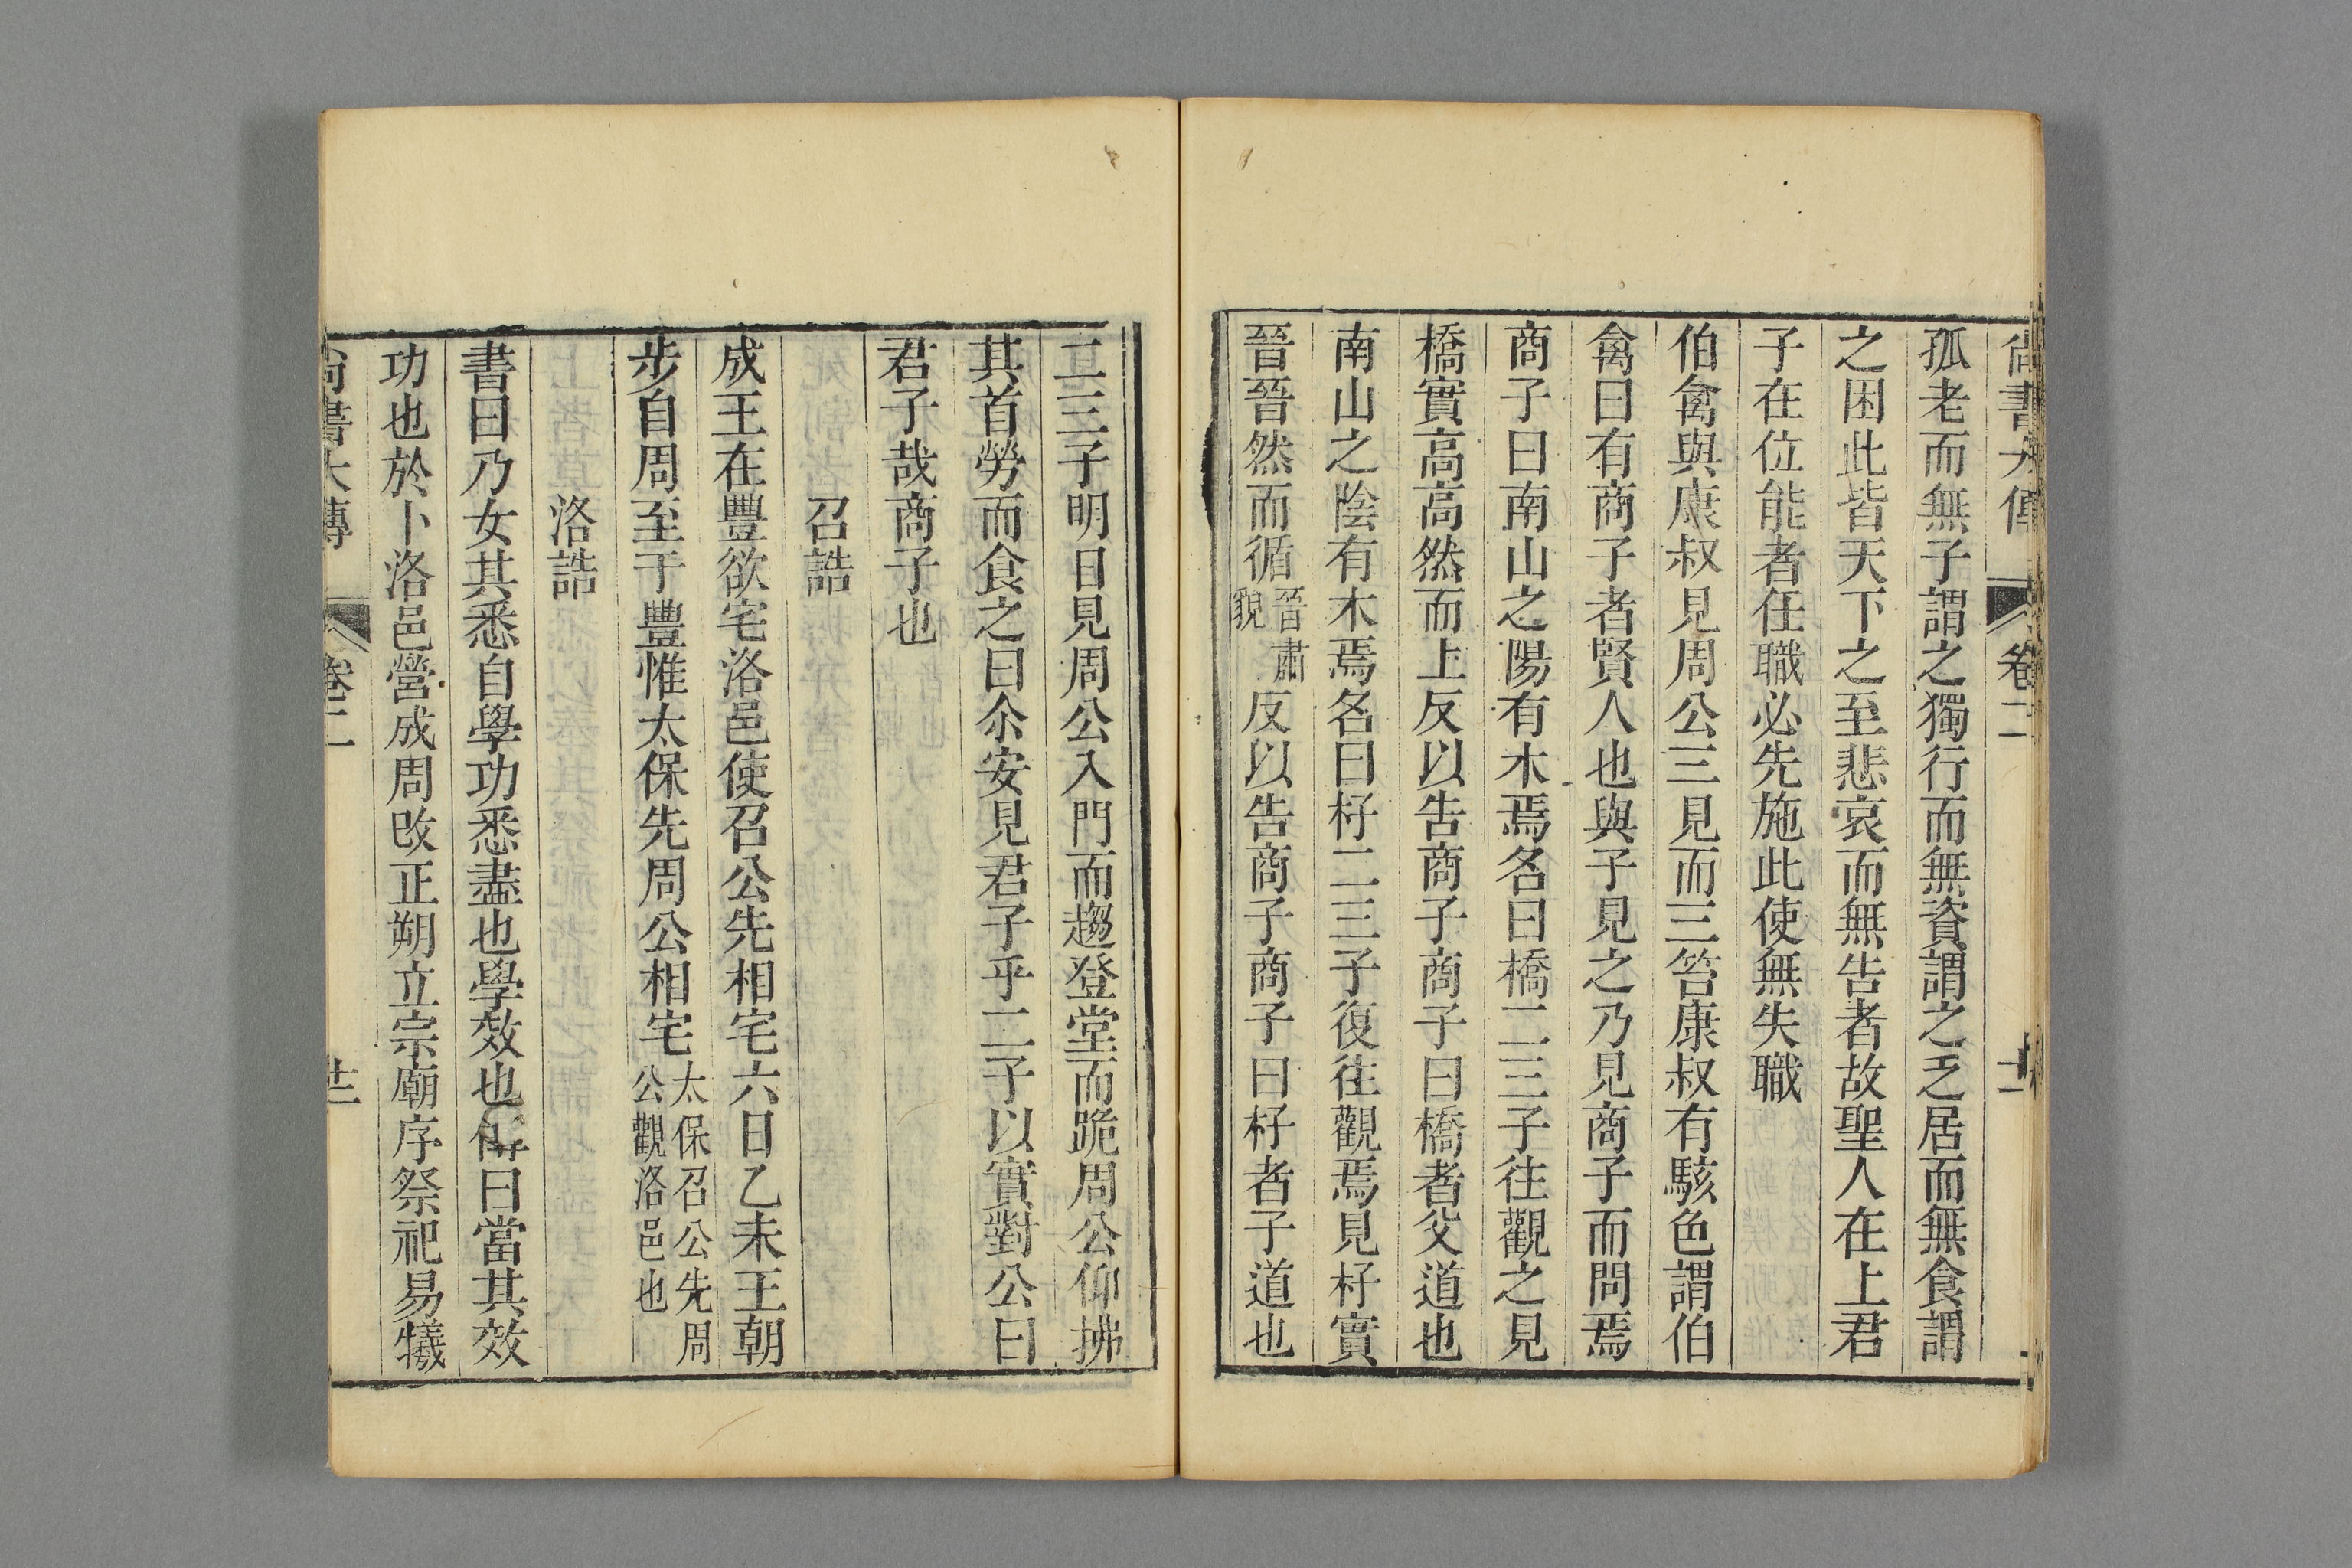 尚書大傳 卷二
孤老而無子謂之獨行而無資謂之乏居而無食謂
之困此皆天下之至悲哀而無告者故聖人在上君
子在位能者任職必先施此使無失職
伯禽與康叔見周公三見而三笞康叔有駭色謂伯
禽曰有商子者賢人也與子見之乃見商子而問焉
商子曰南山之陽有木焉名曰橋二三子往觀之見
橋實高高然而上反以告商子商子曰橋者父道也
南山之陰有木焉名曰杍二三子復往觀焉見杍實
晉晉然而循晉肅貌反以告商子商子曰杍者子道也
二三子明日見周公入門而趨登堂而跪周公仰拂
其首勞而食之曰尒安見君子乎二子以實對公曰
君子哉商子也
召誥
成王在豐欲宅洛邑使召公先相宅六日乙未王朝
步自周至于豐惟太保先周公相宅太保召公先周公觀洛邑也
洛誥
書曰乃女其悉自學功悉盡也學效也曰當其效
功也於卜洛邑營成周改正朔立宗廟序祭祀易犧
尚書大傳 卷二 廿二